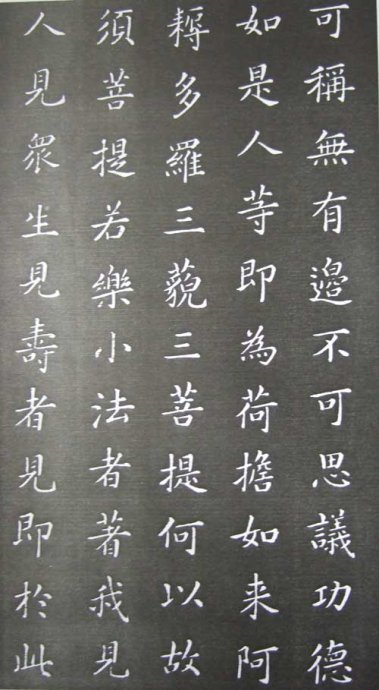 可稱無有邉不可思議功德
如是人等即為荷擔如来阿
耨多羅三藐三菩提何以故
須菩提若樂小法者著我見
人見衆生見壽者見即於此